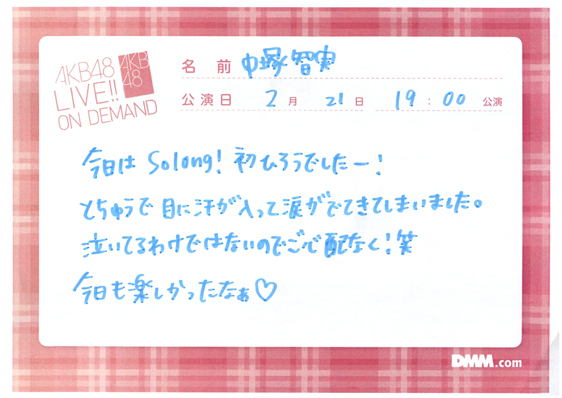 AKB48
LIVE!!
ON DEMAND
AKB
48
名前 中塚智実
公演日 2月 21日 19:00 公演
今日は Solong! 初ひろうでしたー!
とちゅうで目に汗が入って涙がでてきてしまいました。
泣いてるわけではないのでご心配なく!笑
今日も楽しかったなぁ♡
DMM.com